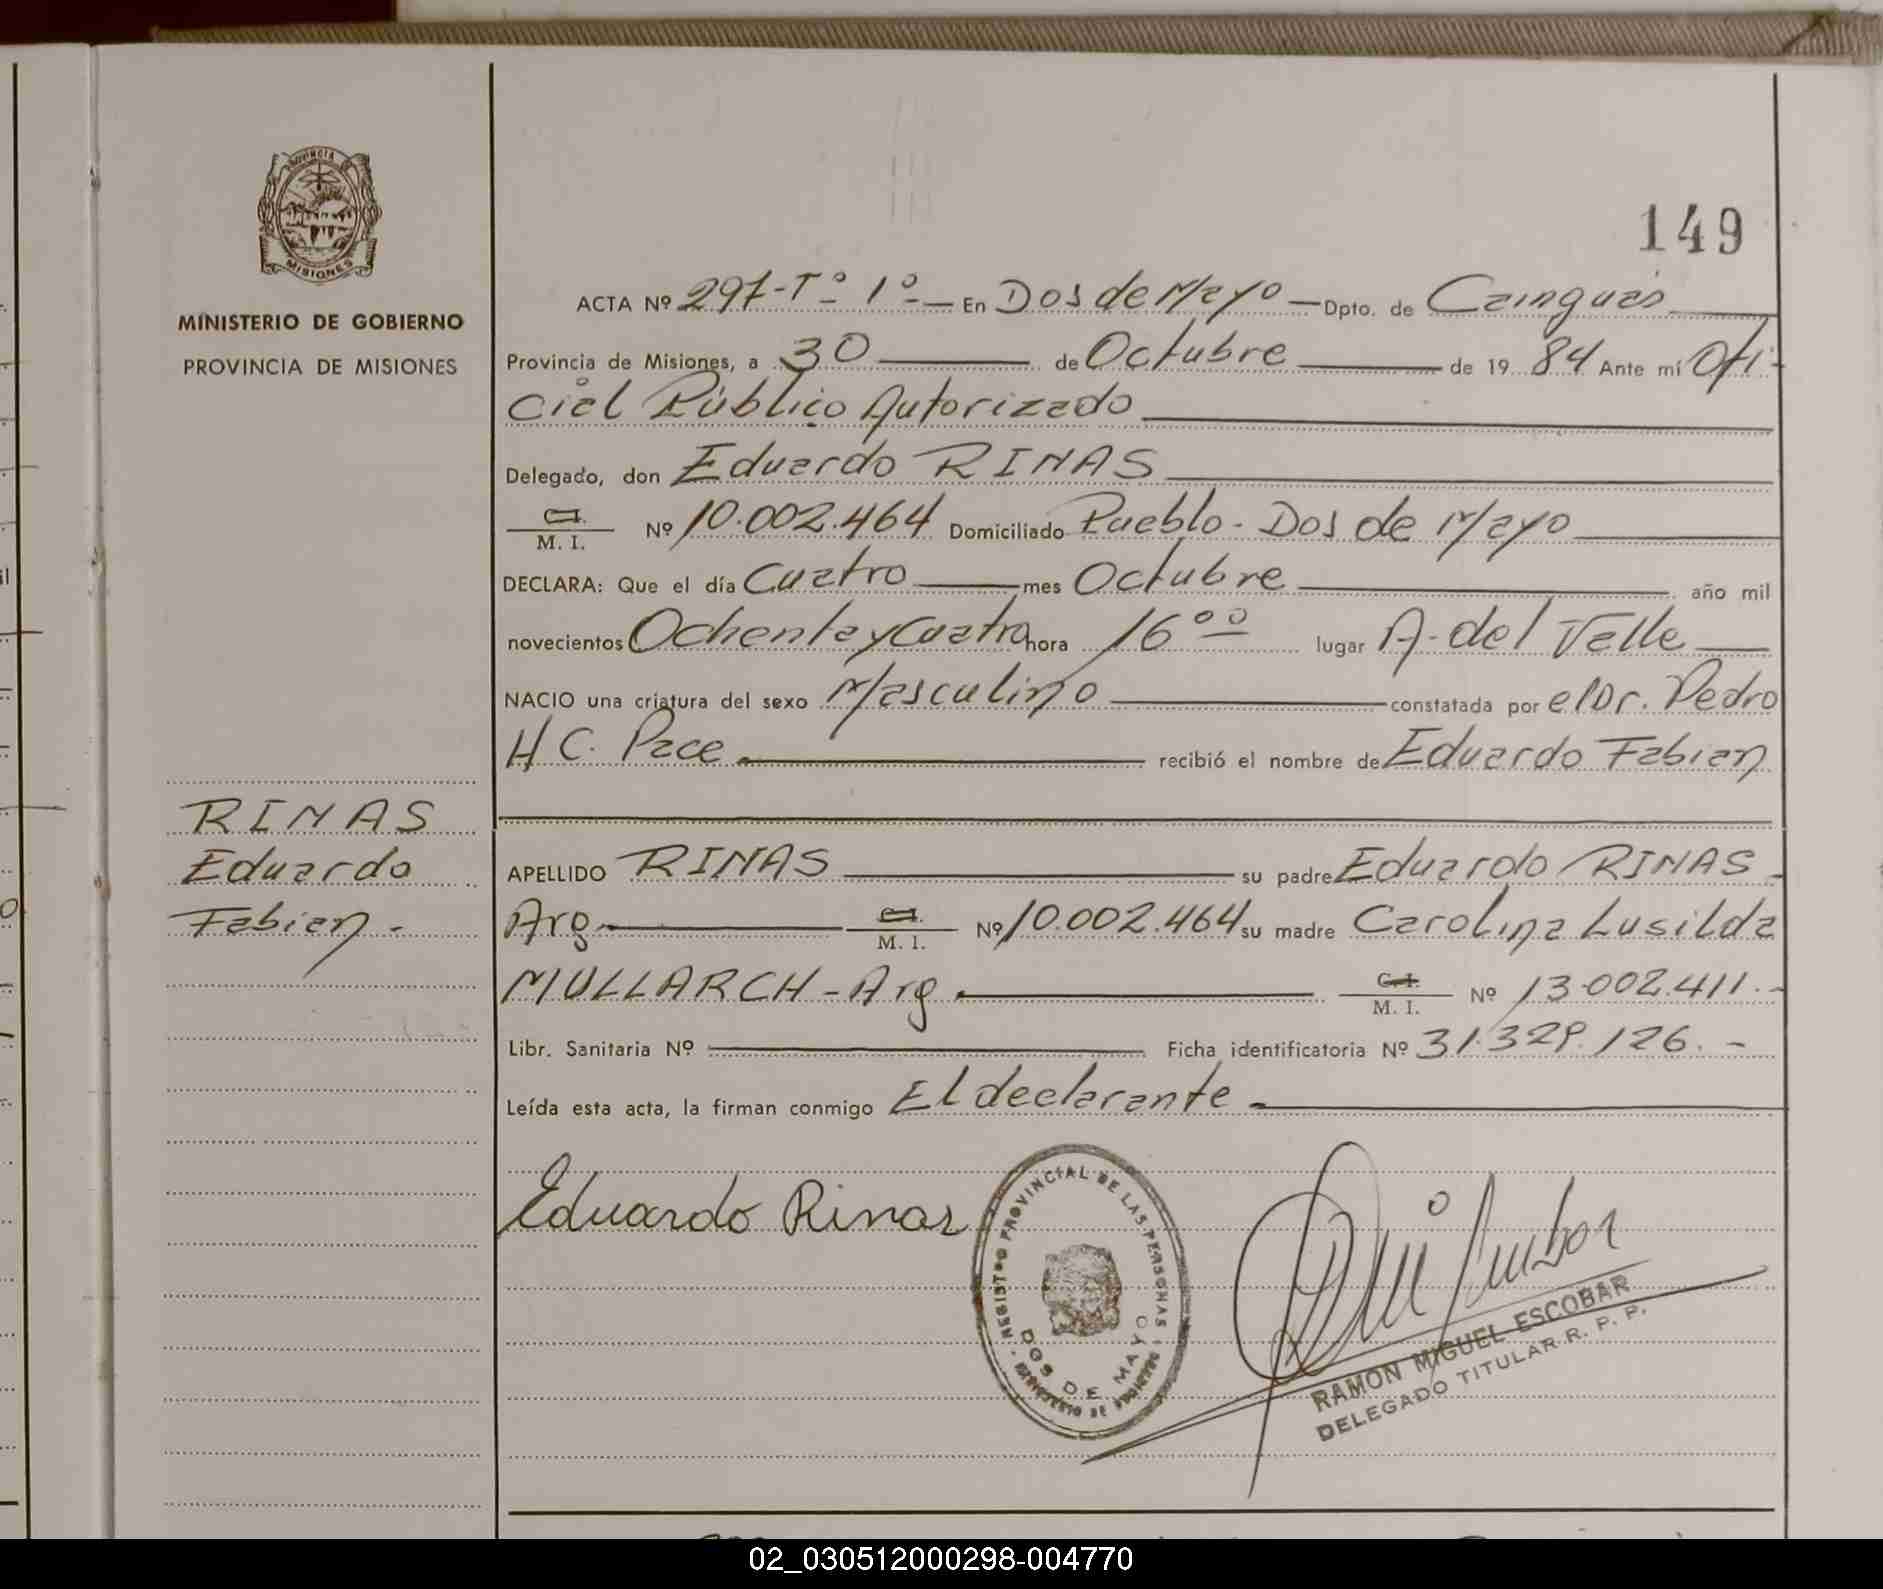 PROVINCIA
MISIONES
MINISTERIO DE GOBIERNO
PROVINCIA DE MISIONES
RINAS
Eduardo
Fabian.-
149
ACTA Nº 297-Tº 1º- En Dos de Mayo - Dpto. de Cainguás
Provincia de Misiones, a 30 de Octubre de 1984 Ante mí Ofi-
cial Público Autorizado
Delegado, don Eduardo RINAS
C.I. M. I. Nº 10.002.464 Domiciliado Pueblo - Dos de Mayo
DECLARA: Que el día Cuatro mes Octubre año mil
novecientos Ochenta y Cuatro hora 16ºº lugar A. del Valle
NACIO una criatura del sexo Masculino constatada por el Dr. Pedro
H C. Pace recibió el nombre de Eduardo Fabian
APELLIDO RINAS su padre Eduardo RINAS -
Arg. C.I. M. I. Nº 10.002.464 su madre Carolina Lusilda
MULLARCH - Arg. C.I. M. I. Nº 13.002.411.-
Libr. Sanitaria Nº Ficha identificatoria Nº 31.329.126.-
Leída esta acta, la firman conmigo El declarante -
Eduardo Rinas
REGISTRO PROVINCIAL DE LAS PERSONAS
DOS DE MAYO
MINISTERIO DE GOBIERNO
RAMON MIGUEL ESCOBAR
DELEGADO TITULAR R. P. P.
02_030512000298-004770